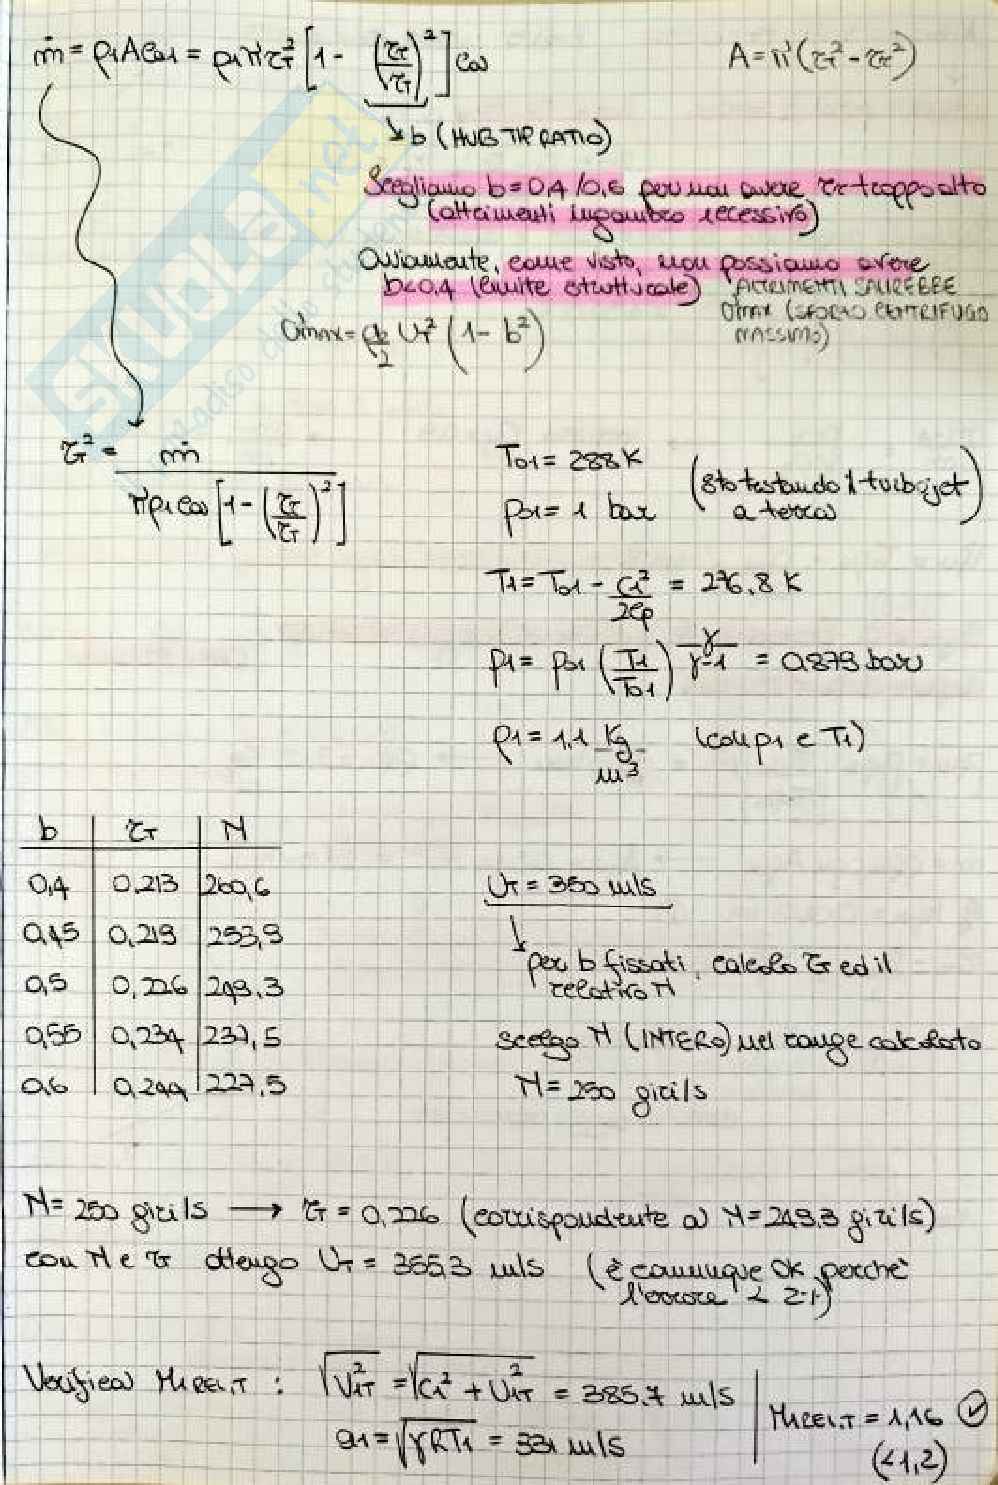 ṁ = ρ₁ACa₁ = ρ₁π r_T² [1 - (r_r/r_T)²] Ca
A = π(r_T² - r_r²)
↳ b (HUB TIP RATIO)
Scegliamo b = 0,4/0,6 per non avere r_T troppo alto
(altrimenti ingombro eccessivo)
Ovviamente, come visto, non possiamo avere
b<0,4 (limite strutturale) ALTRIMENTI SALIREBBE
σmax (SFORZO CENTRIFUGO
MASSIMO)
σmax = ρb/2 U_T² (1 - b²)
r_T² = ṁ / πρ₁Ca [1 - (r_r/r_T)²]
T₀₁ = 288 K
p₀₁ = 1 bar
(sto testando il turbojet
a terra)
T₁ = T₀₁ - C₁²/2Cp = 276,8 K
p₁ = p₀₁ (T₁/T₀₁)^γ/γ-1 = 0,879 bar
ρ₁ = 1,1 Kg/m³ (con p₁ e T₁)
b | r_T | N
0,4 | 0,213 | 260,6
0,45 | 0,219 | 253,9
0,5 | 0,226 | 249,3
0,55 | 0,234 | 237,5
0,6 | 0,244 | 227,5
U_T = 350 m/s
per b fissati, calcolo r_T ed il
relativo N
scelgo N (INTERO) nel range calcolato
N = 250 giri/s
N = 250 giri/s → r_T = 0,226 (corrispondente a N = 249,3 giri/s)
con N e r_T ottengo U_T = 355,3 m/s (è comunque OK perché
l'errore <
Verifica M₁REL,T : √V₁T² = √C₁² + U₁T² = 385,7 m/s
a₁ = √γRT₁ = 331 m/s
M₁REL,T = 1,16 ✓
(<1,2)
SKUOLA.net